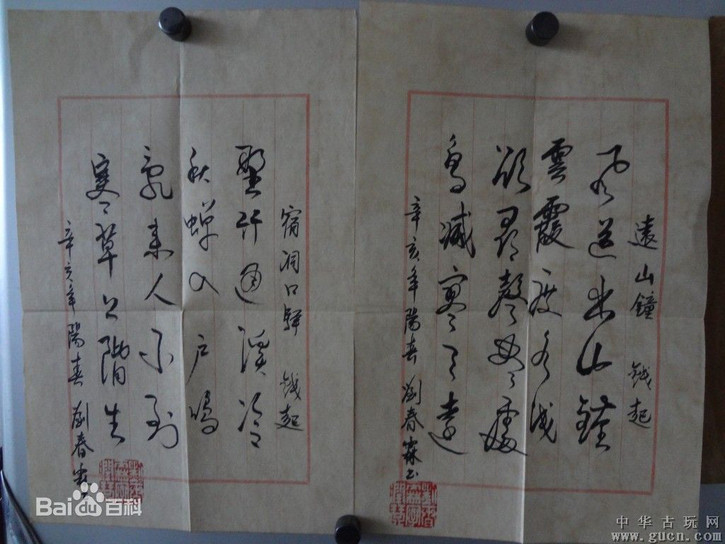 遠山鐘 錢起
風送出山鐘
雲霞度水淺
欲尋聲盡處
鳥滅寥天遠
辛亥年陽春 劉春霖书
宿洞口驛 錢起
野竹通溪冷
秋蟬入户鳴
亂來人不到
寒草上階生
辛亥年陽春 劉春霖
Bai百科
中华古玩网
www.gucn.com